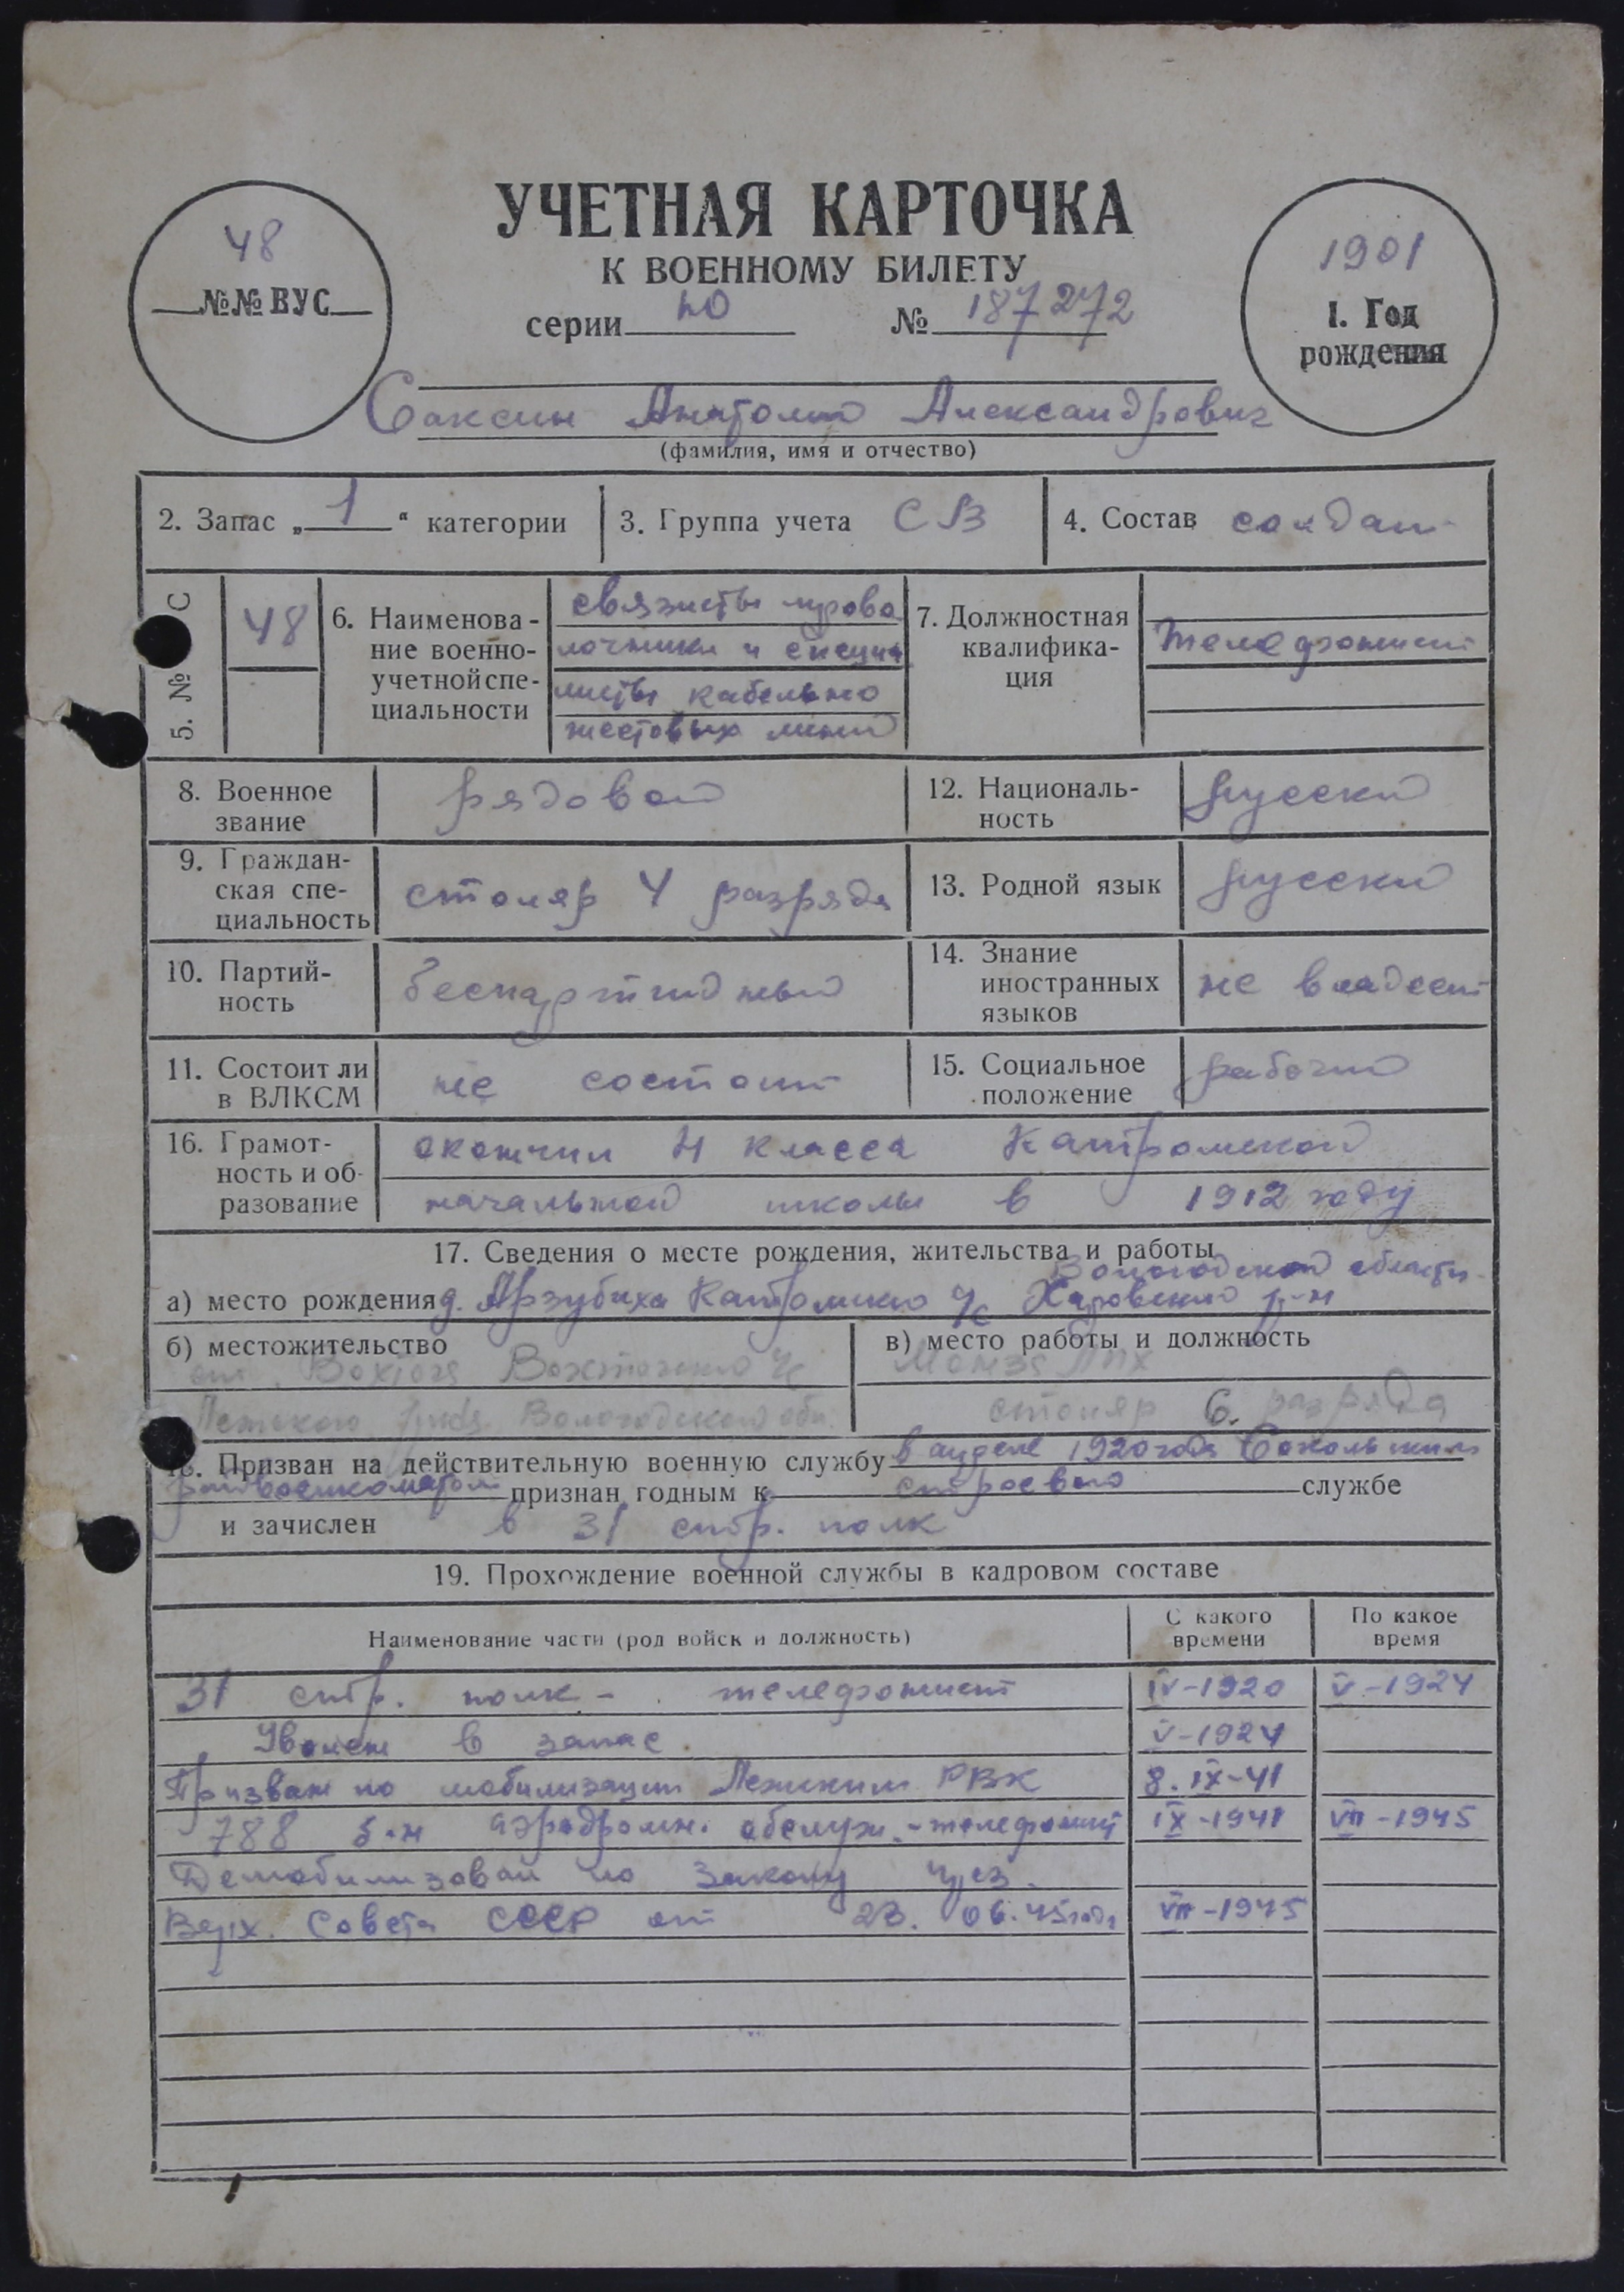 УЧЕТНАЯ КАРТОЧКА
К ВОЕННОМУ БИЛЕТУ
48
№№ ВУС
серии НО № 187272
1901
1. Год рождения
Саксин Анатолий Александрович
(фамилия, имя и отчество)
2. Запас „1“ категории
3. Группа учета СВ
4. Состав солдат
5. № С
48
6. Наименова-
ние военно-
учетной спе-
циальности
связисты прово
лочники и специа
листы кабельно
шестовых линий
7. Должностная
квалифика-
ция
телефонист
8. Военное
звание
рядовой
12. Националь-
ность
русский
9. Граждан-
ская спе-
циальность
столяр 4 разряда
13. Родной язык
русский
10. Партий-
ность
беспартийный
14. Знание
иностранных
языков
не владеет
11. Состоит ли
в ВЛКСМ
не состоит
15. Социальное
положение
рабочий
16. Грамот-
ность и об-
разование
окончил 4 класса Катромской
начальной школы в 1912 году
17. Сведения о месте рождения, жительства и работы
Вологодской области
а) место рождения д. Арзубиха Катромского с/с Харовского р-н
б) местожительство
ст. Вохтога Вохтожского с/с
Лежского р-на Вологодской обл.
в) место работы и должность
Монза ЛПХ
столяр 6. разряда
18. Призван на действительную военную службу в апреле 1920 года Сокольским
райвоенкоматом признан годным к строевой службе
и зачислен в 31 стр. полк
19. Прохождение военной службы в кадровом составе
Наименование части (род войск и должность)
С какого
времени
По какое
время
31 стр. полк - телефонист IV-1920 V-1924
Уволен в запас V-1924
Призван по мобилизации Лежским РВК 8.IX-41
788 б-н аэродромн. обслуж. - телефонист IX-1941 VII-1945
Демобилизован по Закону През.
Верх. Совета СССР от 23.06.45 года VII-1945